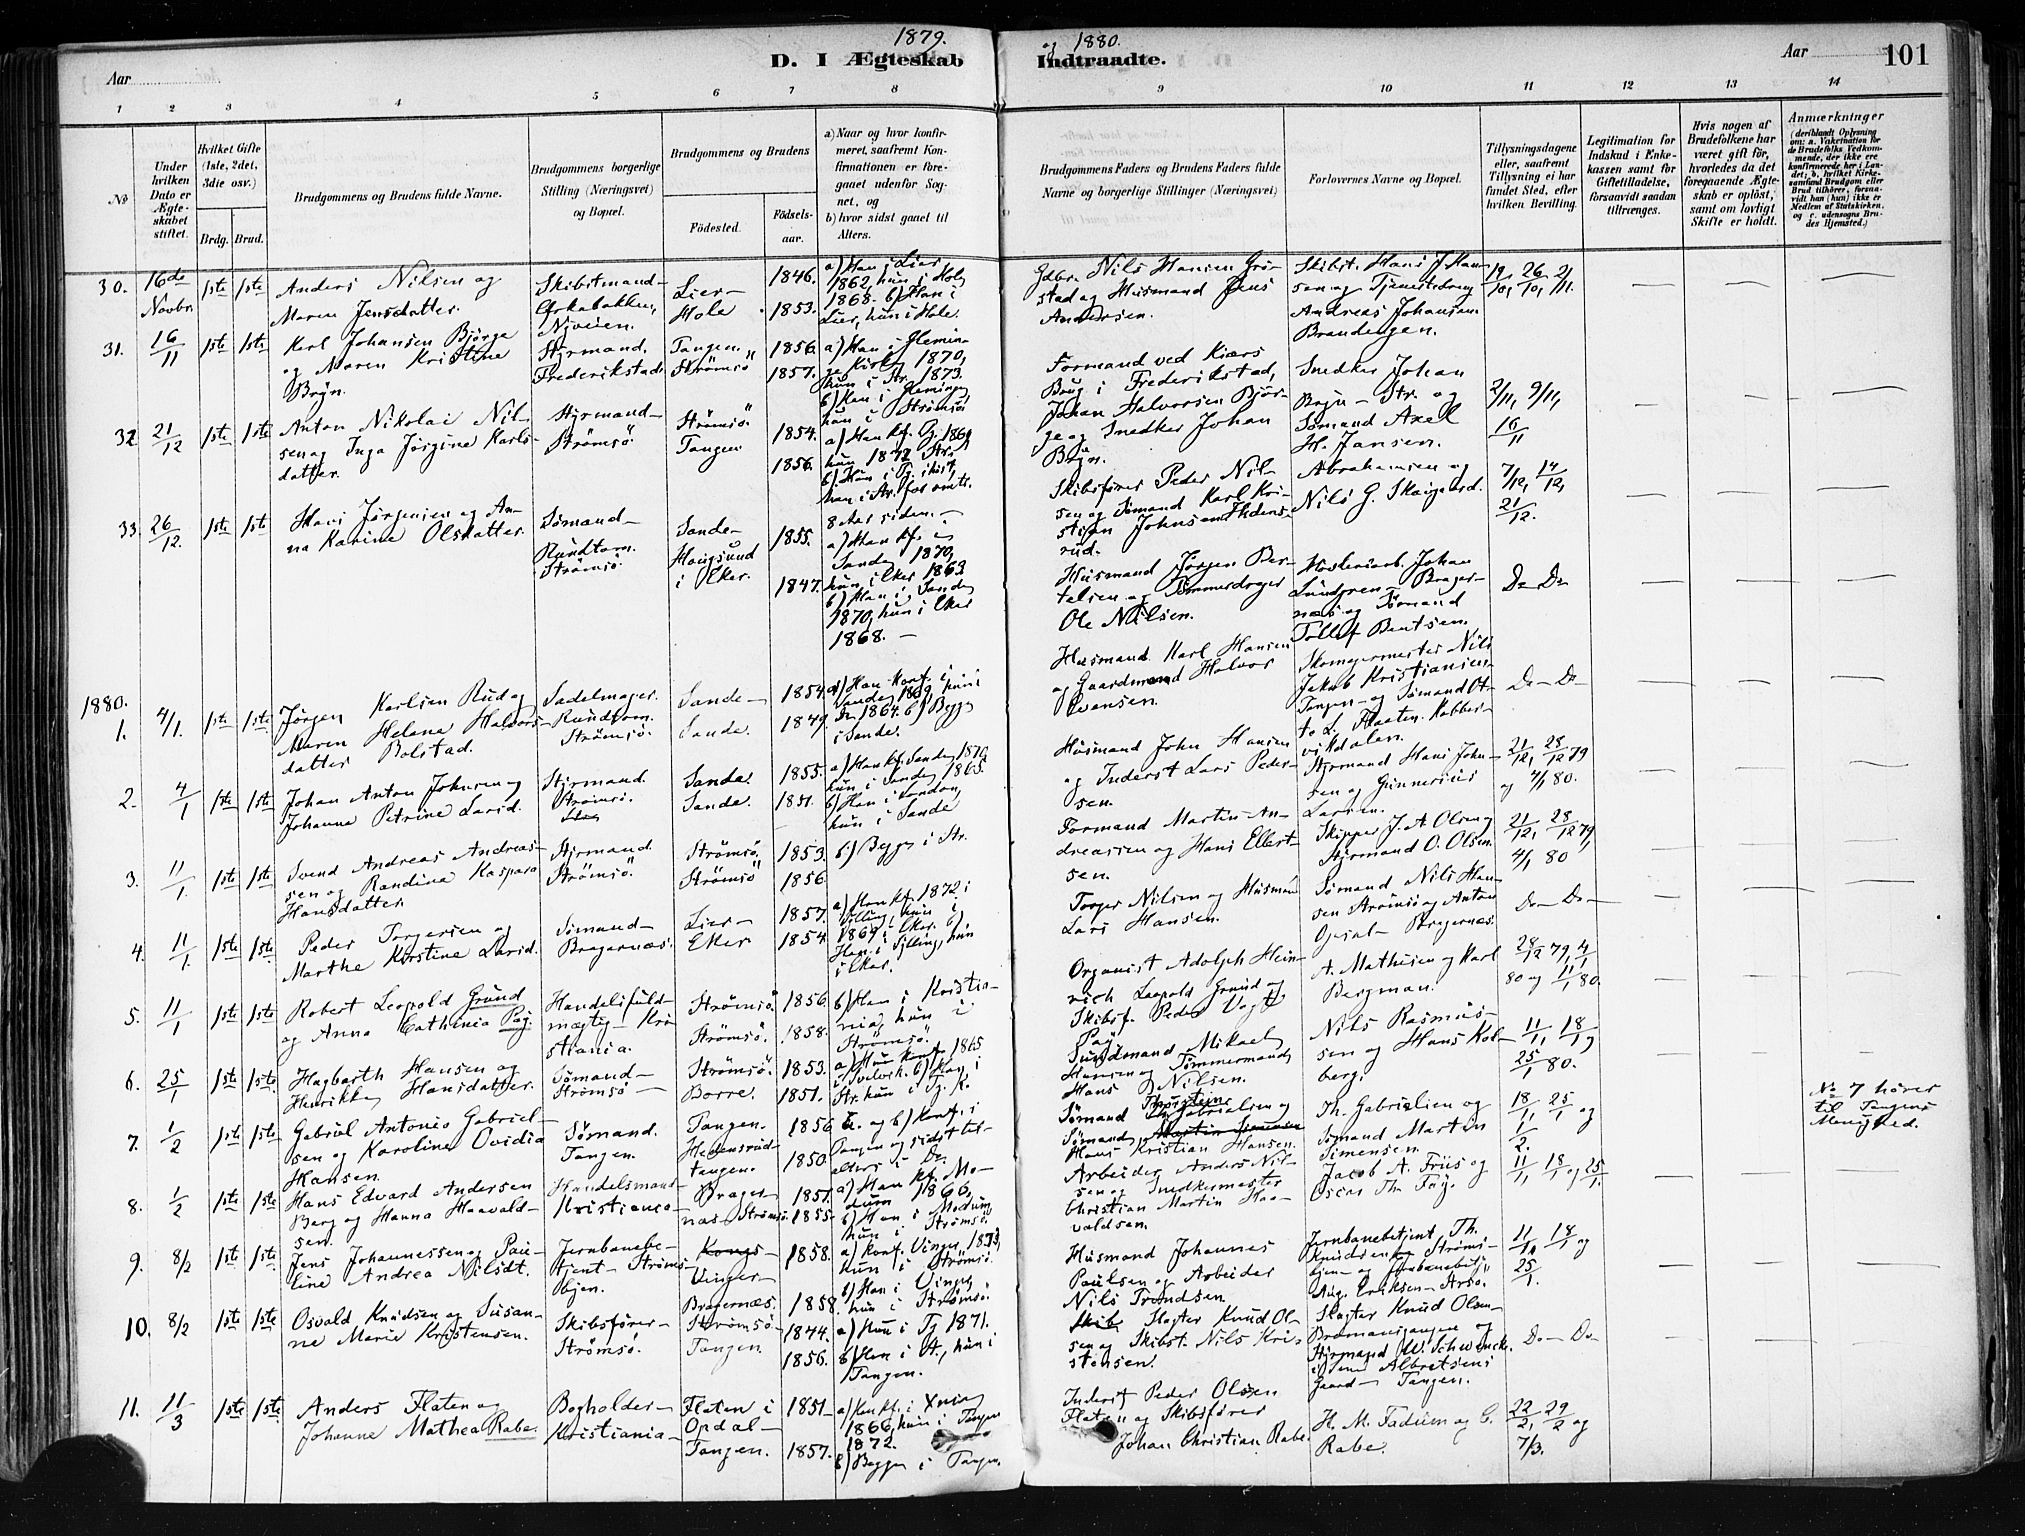 1879. og 1880.
D. I Ægteskab Indtraadte.
Aar
Aar
101
1 2 3 4 5 6 7 8 9 10 11 12 13 14
No
Under hvilken Dato er Ægteskabet stiftet.
Hvilket Gifte (1ste, 2det, 3die osv.)
Brdg. Brud.
Brudgommens og Brudens fulde Navne.
Brudgommens borgerlige Stilling (Næringsvei) og Bopæl.
Brudgommens og Brudens
Fødested.
Fødselsaar.
a) Naar og hvor konfirmeret, saafremt Konfirmationen er foregaaet udenfor Sognet, og
b) hvor sidst gaaet til Alters.
Brudgommens Faders og Brudens Faders fulde Navne og borgerlige Stillinger (Næringsvei)
Forlovernes Navne og Bopæl.
Tillysningsdagene eller, saafremt Tillysning ei har fundet Sted, efter hvilken Bevilling.
Legitimation for Indskud i Enkekassen samt for Giftetilladelse, forsaavidt saadan tiltrænges.
Hvis nogen af Brudefolkene har været gift før, hvorledes da det foregaaende Ægteskab er opløst, samt om lovligt Skifte er holdt.
Anmærkninger
(deriblandt Oplysning om: a. Vakcination for de Brudefolks Vedkommende, der ikke ere konfirmerede her i Landet; b. hvilket Kirkesamfund Brudgom eller Brud tilhører, forsaavidt han (hun) ikke er Medlem af Statskirken, og c. udensogns Brudes Hjemsted.)
30. 16de Novbr. 1ste 1ste Anders Nilsen og Maren Jensdatter. Skibstmand Nyveien. Lier Hole 1846. 1853. a) Han i Lier 1862, hun i Hole 1868. b) Han i Lier, hun i Hole.
Gdbr. Nils Hansen og Husmand Jens Andersen. Skibst. Hans J. Hansen og Andreas Johansen 19/10, 26/10, 2/11.
31. 16/11 1ste 1ste Karl Johansen Bjørge og Maren Kristine Bryn. Styrmand. Frederikstad Tangen. Strømsö 1856. 1857. a) Han i Glemminge Kirke 1870, hun i Str. 1873. b) Han i Glemminge hun i Strømsö
Formand ved Kiærs Brug i Frederikstad, Johan Halvorsen Bjørge og Snedker Johan Bryn. Snedker Johan Bryn – Str. og Sømand Axel H. Jansen. 2/11, 9/11, 16/11
32 21/12 1ste 1ste Anton Nikolai Nilsen og Inga Jörgine Karlsdatter. Styrmand Strömsö Strömsö. Tangen 1854. 1856. a) Han kf. Tg. 1869 hun 1872 Str. b) Han i Tg. sidst, hun i Str. for omtr. 8 Aar siden.
Skibsfører Peder Nilsen og Sømand Karl Kristian Johnsen Abrahamsen og Nils G. Skaigaard. 7/12, 14/12, 21/12.
33. 26/12. 1ste 1ste Hans Jørgensen og Anna Karine Olsdatter. Sømand Rundtom. Strömsö Sande Hougsund i Eker. 1855. 1847. a) Han kf. i Sande 1870, hun i Eker 1863 b) Han i Sande 1870, hun i Eker 1868.
Husmand Jörgen Bertelsen og Tømmerdrager Ole Nilsen. Johan Lundgren Bragernæs og Sømand Tollef Bentsen. Do Do
1880.
1. 4/1. 1ste 1ste Jørgen Karlsen Rud og Maren Helena Halvorsdatter Bolstad. Sadelmager. Rundtom. Strömsö. Sande Sande. 1854. 1849. a) Han konf. i Sande 1869, hun i Do 1864. b) Begge i Sande.
Husmand Karl Hansen og Gaardmand Halvor Evensen. Skomagermester Nils Jakob Kristiansen Tangen og Sømand Otto L. Flaaten. Kobbervikdalen. Do Do
2. 4/1 1ste 1ste Johan Anton Johnsen og Johanne Petrine Larsd. Styrmand. Strömsö. Sande. Sande. 1855. 1851. a) Han kf. Sande 1870, hun i Sande 1865. b) Han i London, hun i Sande
Husmand John Hansen og Inderst Lars Pedersen. Styrmand Hans Johnsen og Gunnerius Larsen. 21/12, 28/12 79 og 4/1 80.
3. 11/1. 1ste 1ste Svend Andreas Andreassen og Randine Kaspara Hansdatter Styrmand. Strömsö. Strömsö. Strömsö 1853. 1856. b) Begge i Str.
Formand Martin Andreassen og Hans Ellertsen. Skipper J. A. Olsen og Styrmand O. Olsen. 21/12, 28/12 79, 4/1 80
4. 11/1. 1ste 1ste. Peder Torgersen og Marthe Kirstine Larsd. Sømand Bragernæs. Lier Eker 1857. 1854. a) Han kf. 1872 i Sylling, hun 1869 i Eker. b) Han i Sylling, hun i Eker.
Torger Nilsen og Husmand Lars Hansen. Sømand Nils Hansen Strömsö og Anton Opsal Bragernæs. Do Do
5. 11/1 1ste 1ste Robert Leopold Grund og Anna Cathinia Pay. Handelsfuldmægtig Kristiania. Strömsö. Strömsö. 1856. 1858. b) Han i Kristiania, hun i Strömsö.
Organist Adolph Heinrich Leopold Grund og Skibsf. Peder Vogt Pay. A. Mathisen og Karl Bergman. 28/12 79, 4/1 80 og 11/1 80.
6. 25/1 1ste 1ste Hagbarth Hansen og Henrikke Hansdatter. Sømand Strömsö Strömsö. Borre. 1853. 1851. a) Hun konf. 1865 i Svelvik. b) Han i Str. hun i Tg. K.
Mikael Hansen og Tømmermand Hans Nilsen. Nils Rasmussen og Hans Kolberg. 11/1, 18/1, 25/1 80.
7. 1/2 1ste 1ste Gabriel Antonio Gabrielsen og Karoline Ovidia Hansen. Sømand. Tangen. Tangen. 1856. 1850. a. og b) Konf. i Tangen og sidst til alters i Do.
Sømand Thorstein Gabrielsen og Sømand Hans Kristian Hansen. Th. Gabrielsen og Sømand Martin Simensen. 18/1, 25/1 og 1/2. No 7 hører til Tangens Menighed.
8. 1/2 1ste 1ste Hans Edvard Andersen Berg og Hanna Haavaldsen. Handelsmand Kristiania Bragernæs Strömsö. 1851. 1855. a) Han kf. Modum 1866. b) Han i Modum, hun i Strömsö.
Arbeider Anders Nilsen og Snedkermester Christian Martin Haavaldsen. Jacob A. Friis og Oscar Th. Fay. 11/1, 18/1 og 25/1.
9. 8/2 1ste 1ste. Jens Johannessen og Pauline Andrea Nilsdt. Jernbanebetjent Strömsöbyen. Kongsvinger Bragernæs. 1858. 1858. a) Konf. Vinger 1873, hun i Strömsö. b) Han i Vinger, hun i Strömsö.
Husmand Johannes Paulsen og Arbeider Nils Trondsen. Jernbanebetjent Th. Knudsen Aug. Eriksen 11/1, 18/1 og 25/1.
10. 8/2 1ste 1ste Osvald Knudsen og Susanne Marie Kristensen. Skibsfører Strömsö. Strömsö Tangen. 1856. a) Hun i Tg 1871. b) Han i St., hun i Tangen.
Slagter Knud Olsen og Skibst. Nils Kristensen. Slagter Knud Olsen og Styrmand W. Schwencke Albretsens Gaard Tangen. Do Do
11. 11/3 1ste 1ste Anders Flaten og Johanne Mathea Rabe. Bogholder Kristiania Flaten i Opdal Tangen. 1851 1857. a) Konf. i Xnia 1866, hun i Tangen 1872. b) Begge i Tangen.
Inderst Peder Olsen Flaten og Skibsfører Johan Christian Rabe. H. M. Fadum og C. Rabe. 22/2, 29/2 og 7/3.